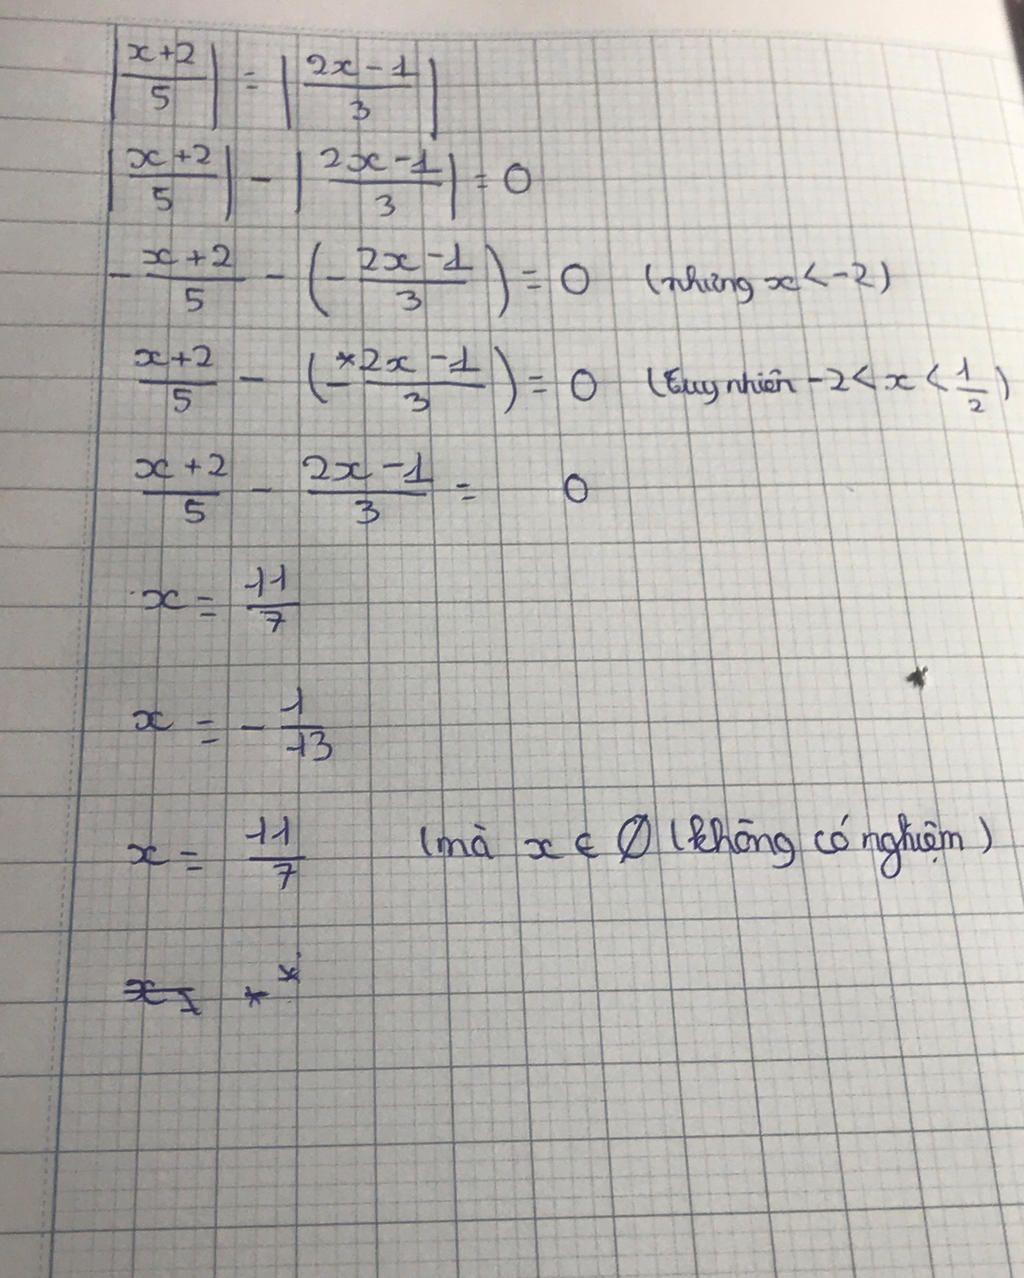 |x+2/5| = |2x-1/3|
|x+2/5| - |2x-1/3| = 0
- x+2/5 - (- 2x-1/3) = 0 (nhưng x < -2)
x+2/5 - (- 2x-1/3) = 0 (tuy nhiên -2 < x < 1/2)
x+2/5 - 2x-1/3 = 0
x = 11/7
x = - 1/13
x = 11/7 (mà x ∈ ∅ (không có nghiệm)